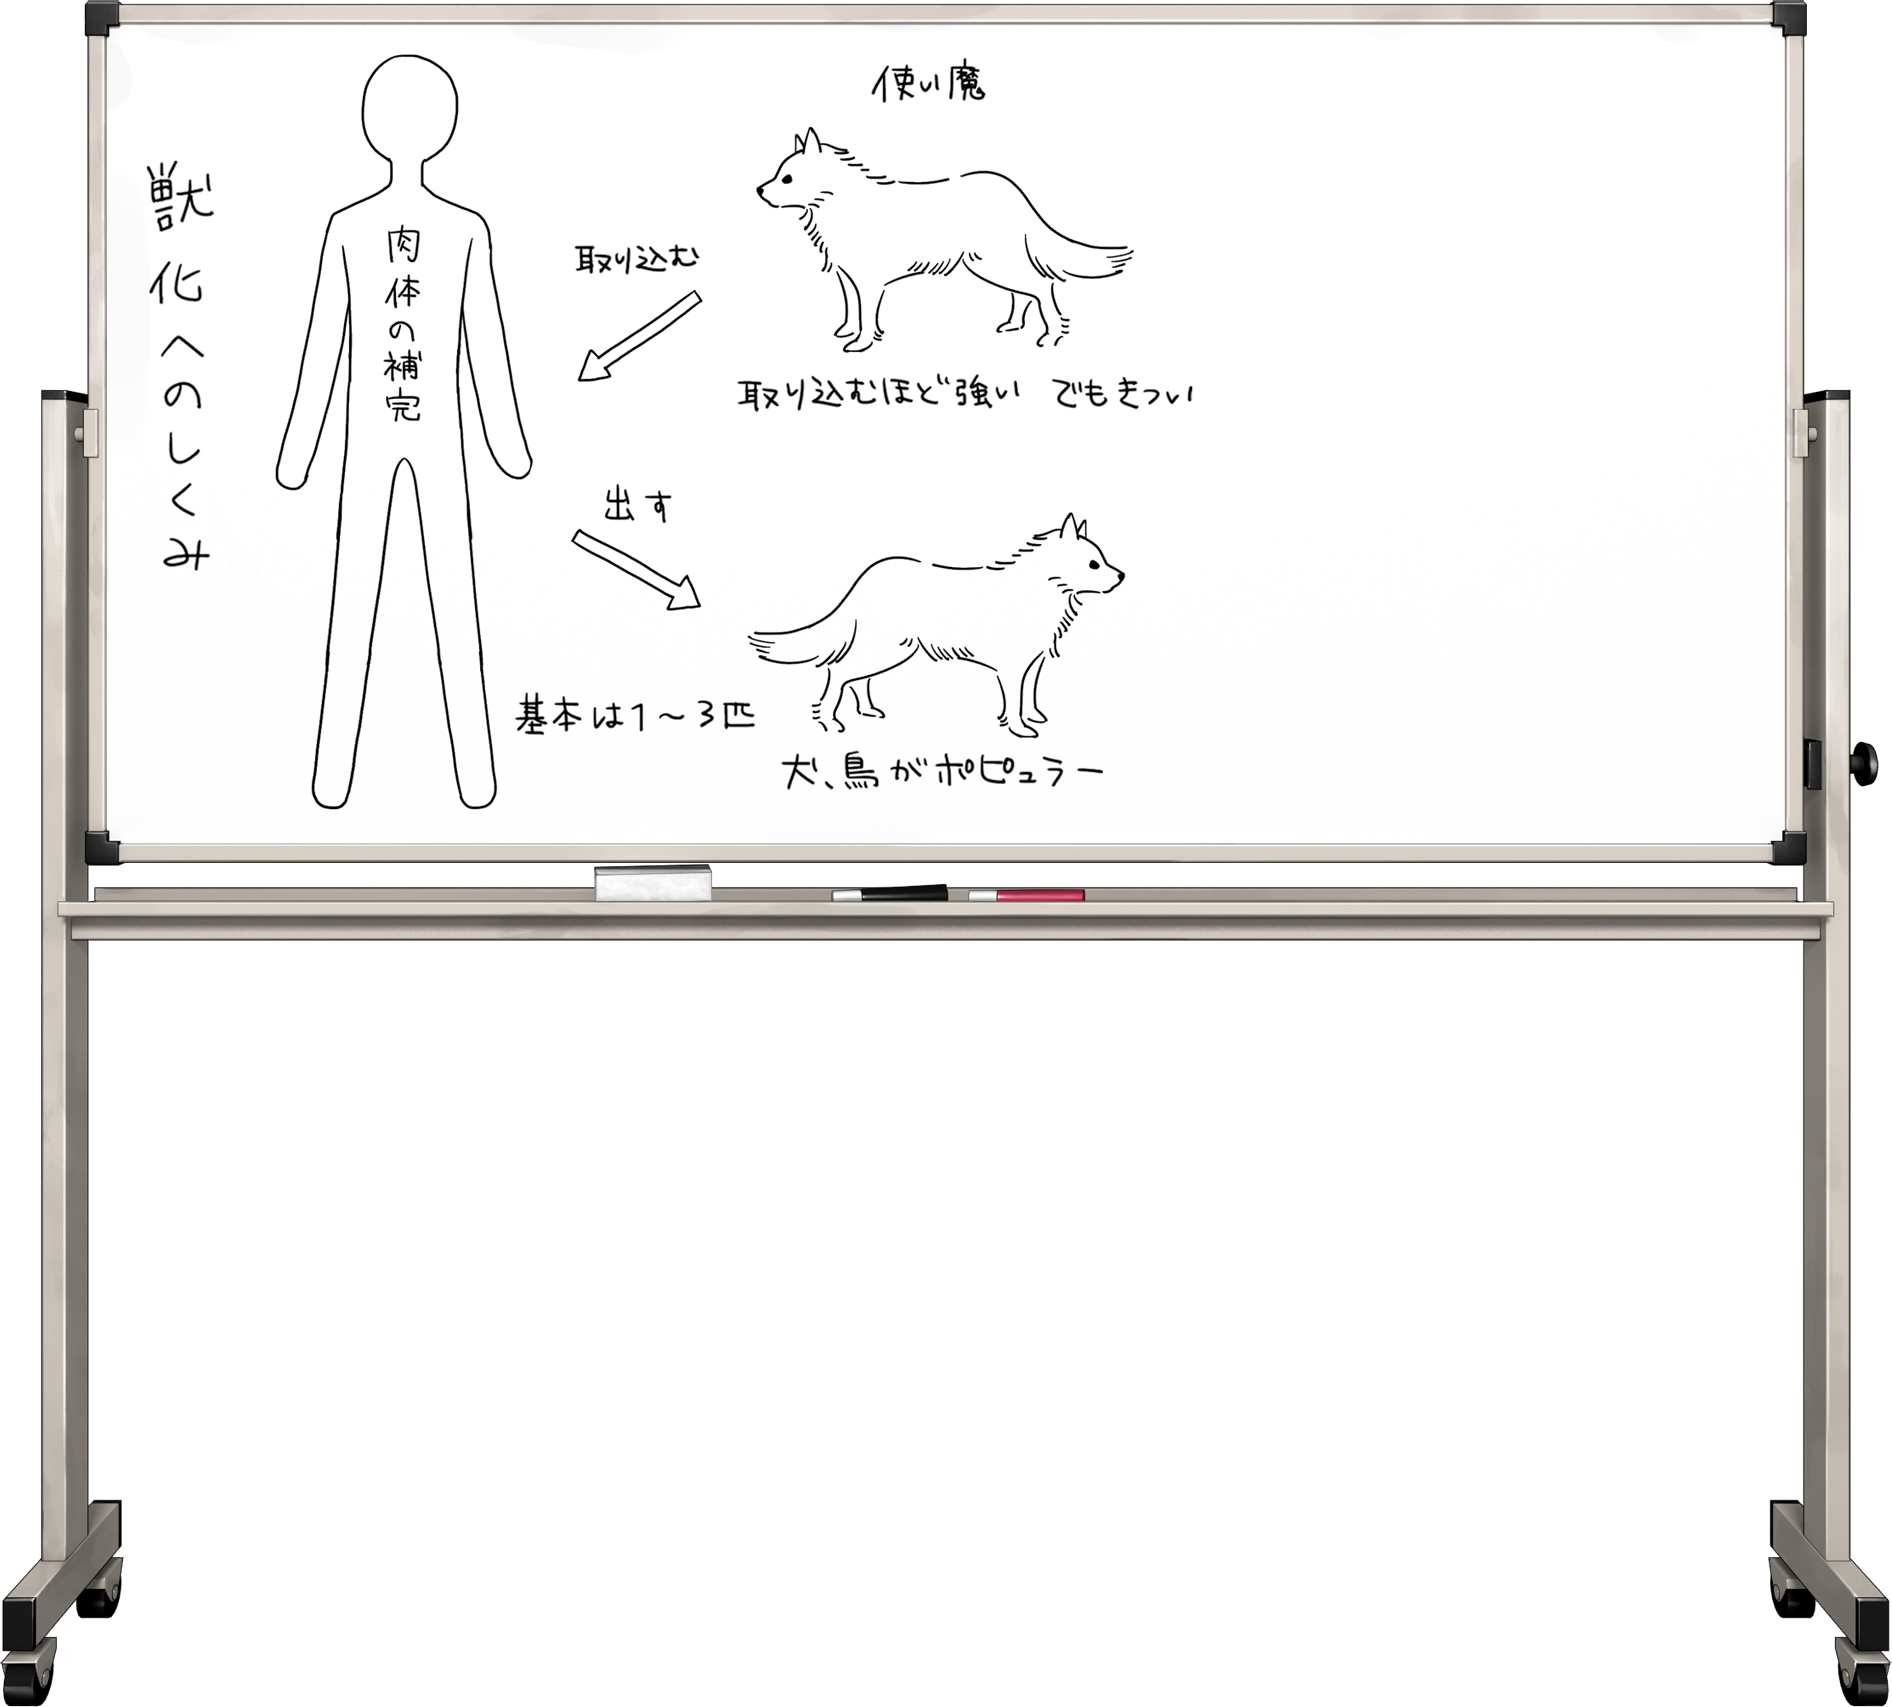 獣化へのしくみ
肉体の補完
使い魔
取り込む
取り込むほど強い でもきつい
出す
基本は1〜3匹
犬、鳥がポピュラー